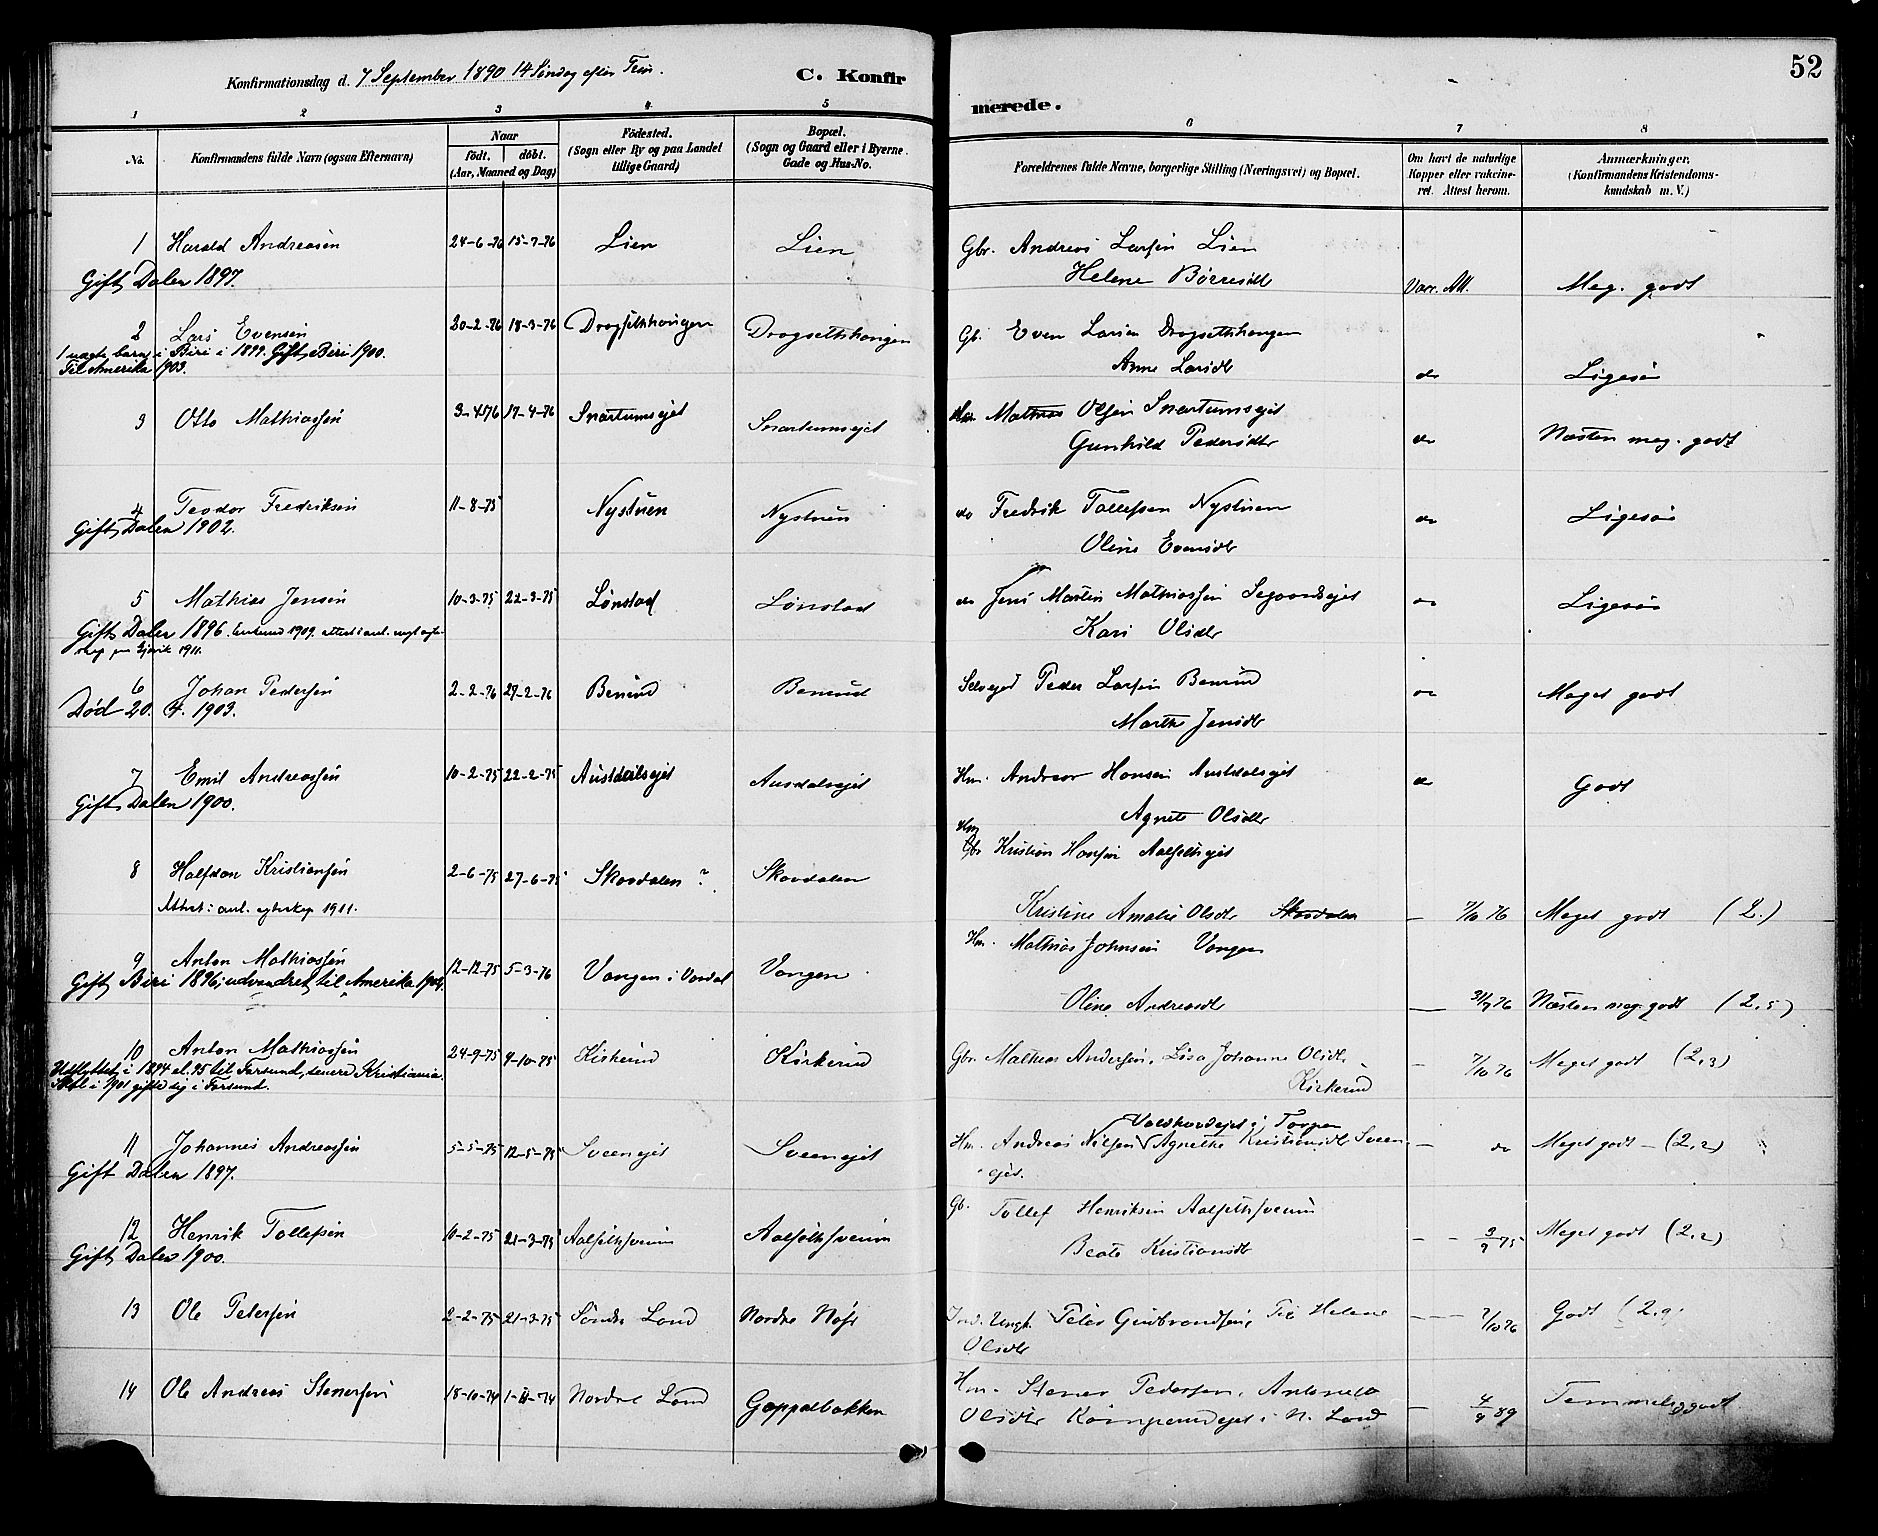 Konfirmationsdag d. 7 September 1890 14 Søndag efter Trin.
C. Konfir
merede.
52
1 2 3 4 5 6 7 8
No.
Konfirmandens fulde Navn (ogsaa Efternavn)
Naar
födt. döbt.
(Aar, Maaned og Dag)
Födested.
(Sogn eller By og paa Landet
tillige Gaard)
Bopæl.
(Sogn og Gaard eller i Byerne
Gade og Hus-No.
Forældrenes fulde Navne, borgerlige Stilling (Næringsvei) og Bopæl.
Om havt de naturlige
Kopper eller vakcine-
ret. Attest herom.
Anmærkninger.
(Konfirmandens Kristendoms-
kundskab m. V.)
1 Harald Andreasen 24-6-76 15-7-76 Lien Lien Gbr. Andreas Larsen Lien
Gift, Dalen 1897. Helene Børresdt Vacc. Att. Meg. godt
2 Lars Evensen 20-2-76 18-3-76 Drogsethhaugen Drogsethhaugen Gb. Even Larsen Drogsethhaugen
1 uægte barn i Biri i 1899. Gift, Biri 1900.
Til Amerika 1903. Anne Larsdt do Ligesaa
3 Otto Mathiassen 3-4-76 17-4-76 Snartumsejet Snartumsejet Hm. Mathias Olsen Snartumsejet
Gunhild Pedersdtr do Næsten meg. godt
4 Teodor Fredriksen 11-8-75 Nystuen Nystuen do Fredrik Tollefsen Nystuen
Gift, Dalen 1902. Oline Evensdt do Ligesaa
5 Mathias Jensen 10-3-75 22-3-75 Lønstad Lønstad do Jens Martin Mathiassen Segaardsejet
Gift, Dalen 1896. 1909. attest i anl. nyt egte-
skap paa Gjøvik 1911. Kari Olsdtr do Ligesaa
6 Johan Pedersen 2-2-76 27-2-76 Benrud Benrud Selvejer Peder Larsen Benrud
Død 20. 4. 1903. Marthe Jensdt do Meget godt
7 Emil Andreassen 10-2-75 22-2-75 Austdalsejet Ausdalsejet Hm. Andreas Hansen Austdalsejet
Gift, Dalen 1900. Agnete Olsdtr do Godt
8 Halfdan Kristiansen 2-6-75 27-6-75 Skovdalen? Skovdalen Hm Gbr Kristian Hansen Aalsethejet
Attest i anl. egteskap 1911. Kristine Amalie Olsdtr Skovdalen — 7/10 76 Meget godt (2.)
9 Anton Mathiassen 12-12-75 5-3-76 Vangen i Vardal Vangen Hm. Mathias Johnsen Vangen
Gift, Biri 1896; udvandret til Amerika 1904. Oline Andreasdt — 31/7 76 Næsten meg. godt (2,5)
10 Anton Mathiassen 24-9-75 4-10-75 Kirkerud Kirkerud Gbr. Mathias Andersen, Lisa Johanne Olsdtr
Udflyttet i 1894 el. 95 til Farsund, senere Kristiania.
Skal i 1901 gifte sig i Farsund. Kirkerud — 7/10 76 Meget godt (2,3)
11 Johannes Andreassen 5-5-75 12-5-75 Sveenejet Sveenejet Hm. Andreas Nilsen, Agnethe Kristiansdt Sveen-
Gift Dalen 1897. ejet. — do Meget godt — (2,2)
12 Henrik Tollefsen 10-2-75 21-3-75 Aalsethsveum Aalsethsveum Gb. Tollef Henriksen Aalsethsveum
Gift, Dalen 1900. Beate Kristiansdt — 3/9 75 Meget godt (2,2)
13 Ole Petersen 2-2-75 21-3-75 Søndre Land Nordre Nøss Ind. Ungk. Peter Gudbrandsen, Pi. Helene
Olsdtr — 7/10 76 Godt (2,9)
14 Ole Andreas Stenersen 18-10-74 1-11-74 Nordre Land Gøppelbakken Hm. Stener Pedersen, Antonette
Olsdtr i N. Land — 4/9 89 Temmelig godt